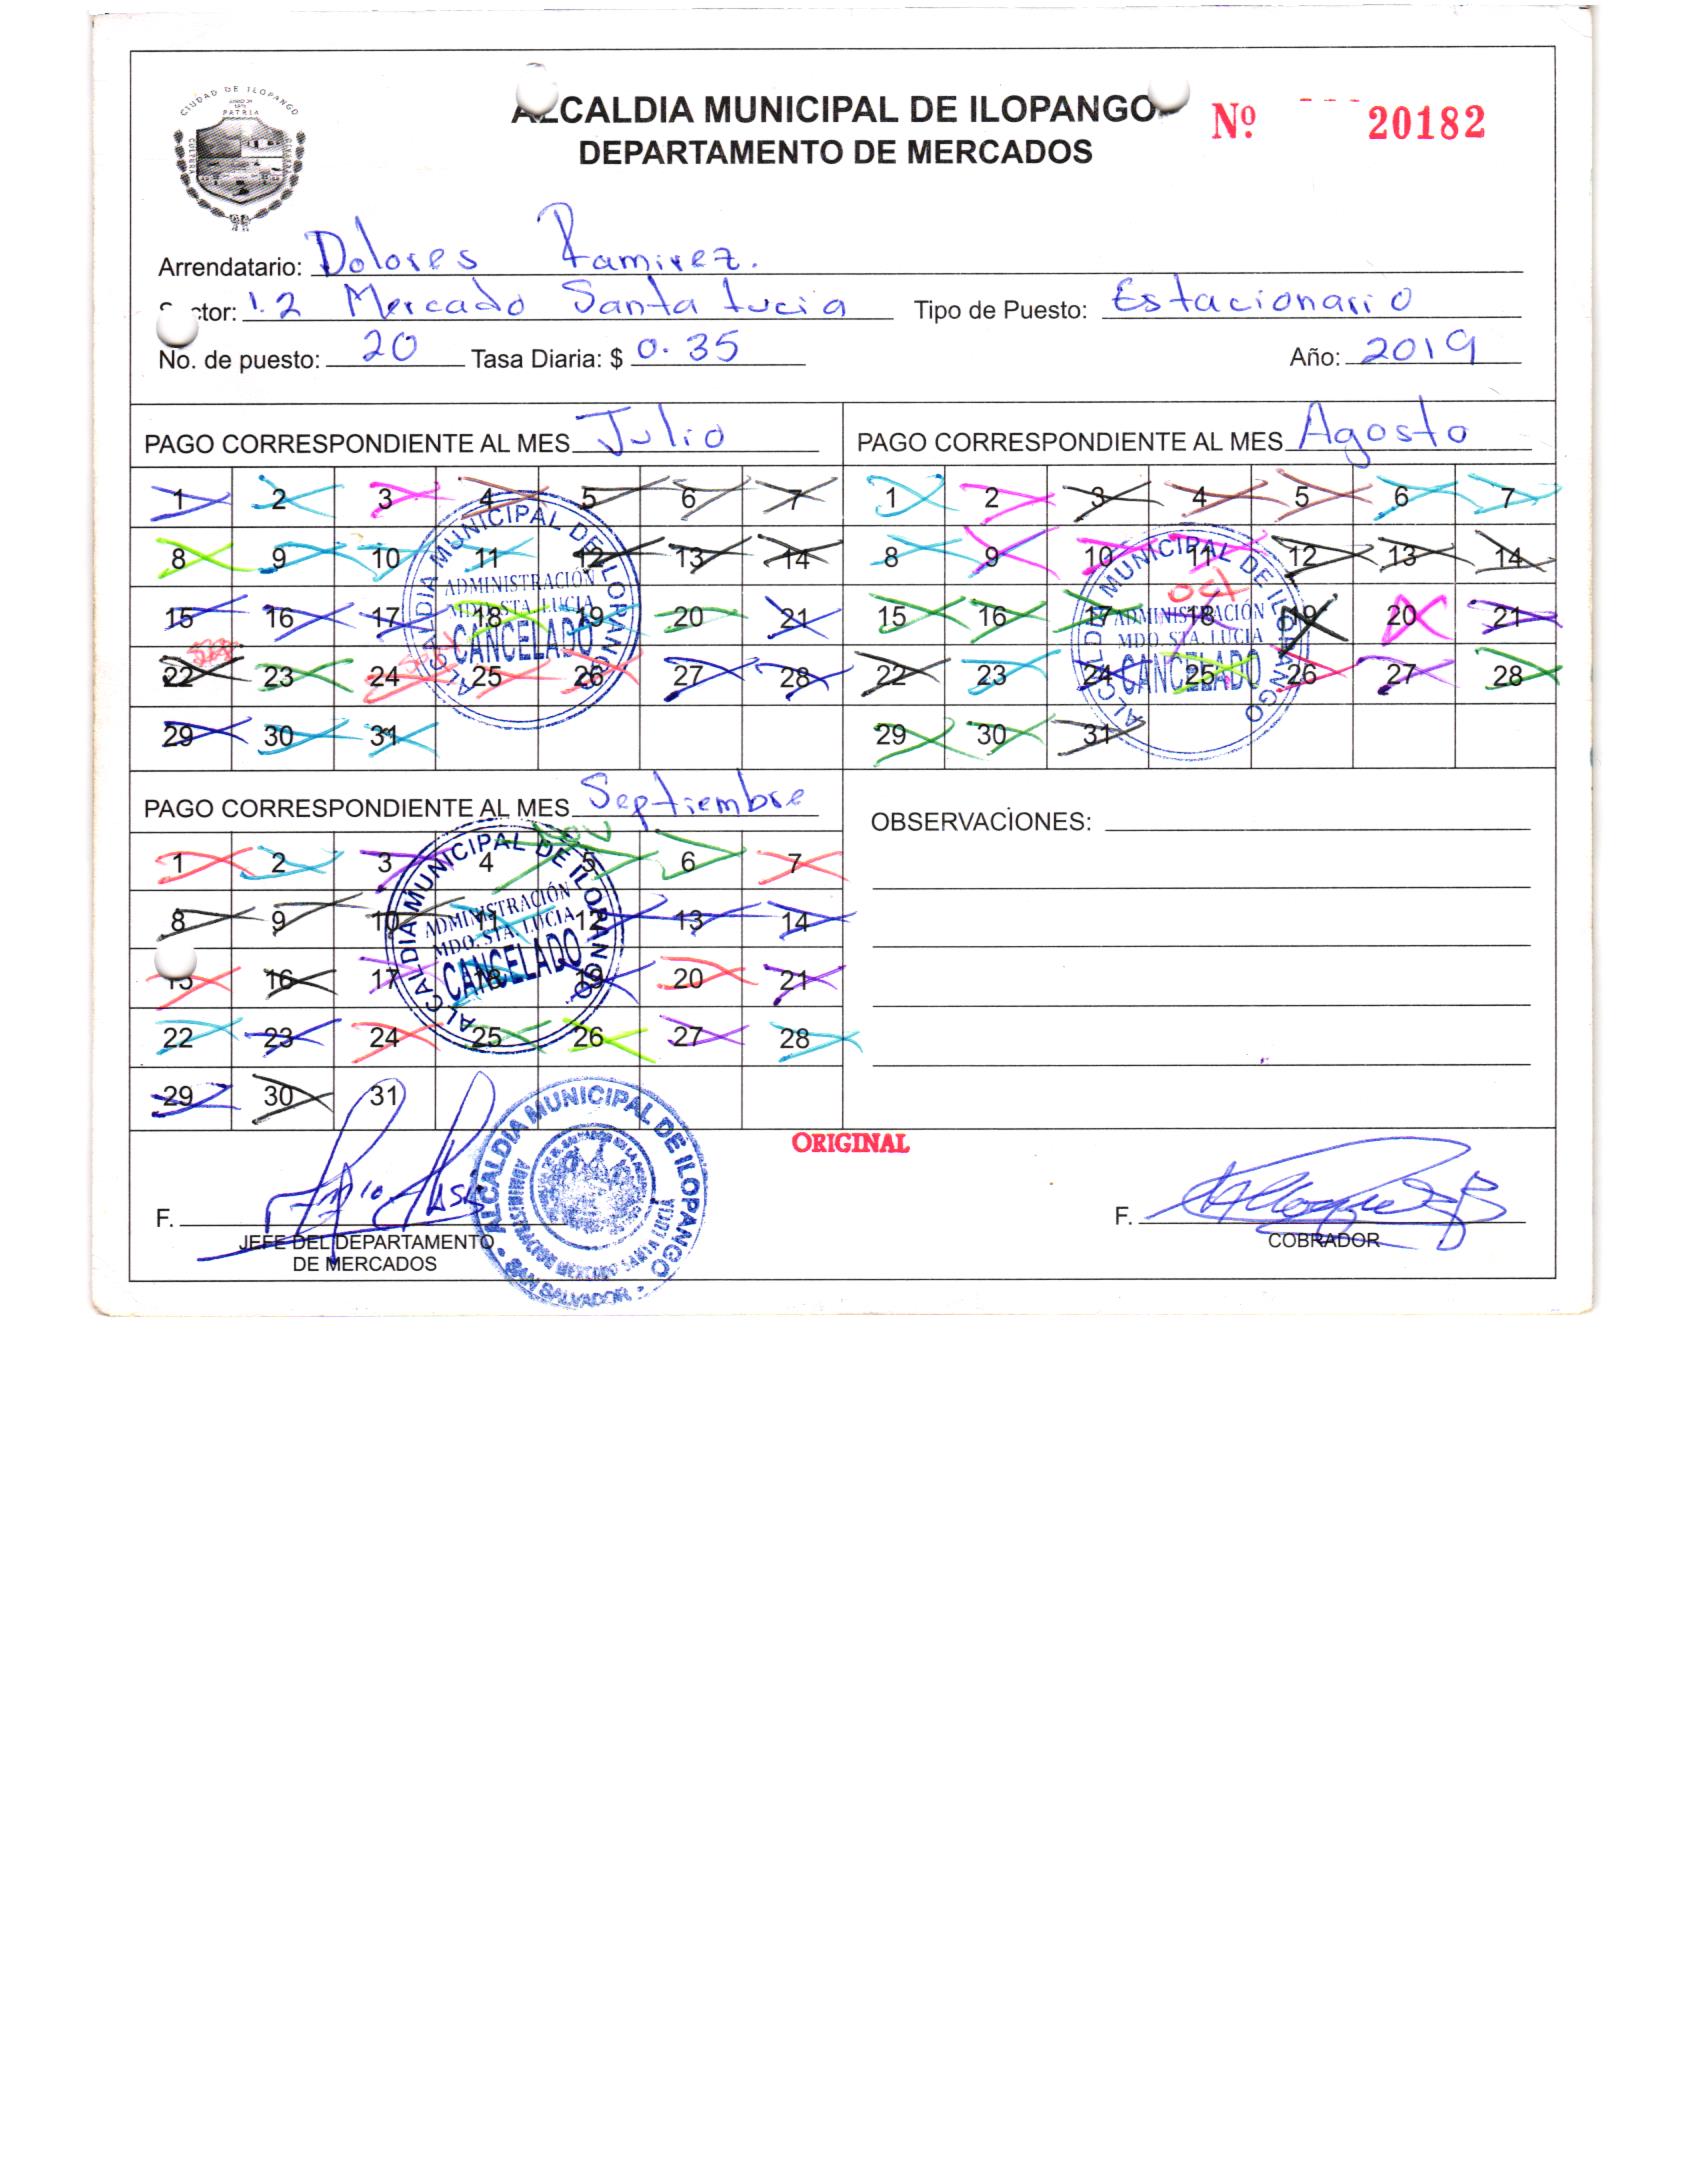 CIUDAD DE ILOPANGO
PATRIA
CULTURA
ALCALDIA MUNICIPAL DE ILOPANGO
DEPARTAMENTO DE MERCADOS
Nº 20182
Arrendatario: Dolores Ramirez.
Sector: 1.2 Mercado Santa Lucia Tipo de Puesto: Estacionario
No. de puesto: 20 Tasa Diaria: $ 0.35 Año: 2019
PAGO CORRESPONDIENTE AL MES Julio
1 2 3 4 5 6 7
8 9 10 11 12 13 14
15 16 17 18 19 20 21
22 23 24 25 26 27 28
29 30 31
ALCALDIA MUNICIPAL DE ILOPANGO
ADMINISTRACIÓN
MDO. STA. LUCIA
CANCELADO
PAGO CORRESPONDIENTE AL MES Agosto
1 2 3 4 5 6 7
8 9 10 11 12 13 14
15 16 17 18 19 20 21
22 23 24 25 26 27 28
29 30 31
ALCALDIA MUNICIPAL DE ILOPANGO
ADMINISTRACIÓN
MDO. STA. LUCIA
CANCELADO
PAGO CORRESPONDIENTE AL MES Septiembre
1 2 3 4 5 6 7
8 9 10 11 12 13 14
15 16 17 18 19 20 21
22 23 24 25 26 27 28
29 30 31
ALCALDIA MUNICIPAL DE ILOPANGO
ADMINISTRACIÓN
MDO. STA. LUCIA
CANCELADO
OBSERVACIONES:
ORIGINAL
F.
JEFE DEL DEPARTAMENTO
DE MERCADOS
ALCALDIA MUNICIPAL DE ILOPANGO
ADMINISTRACION MERCADO SANTA LUCIA
SAN SALVADOR
F.
COBRADOR